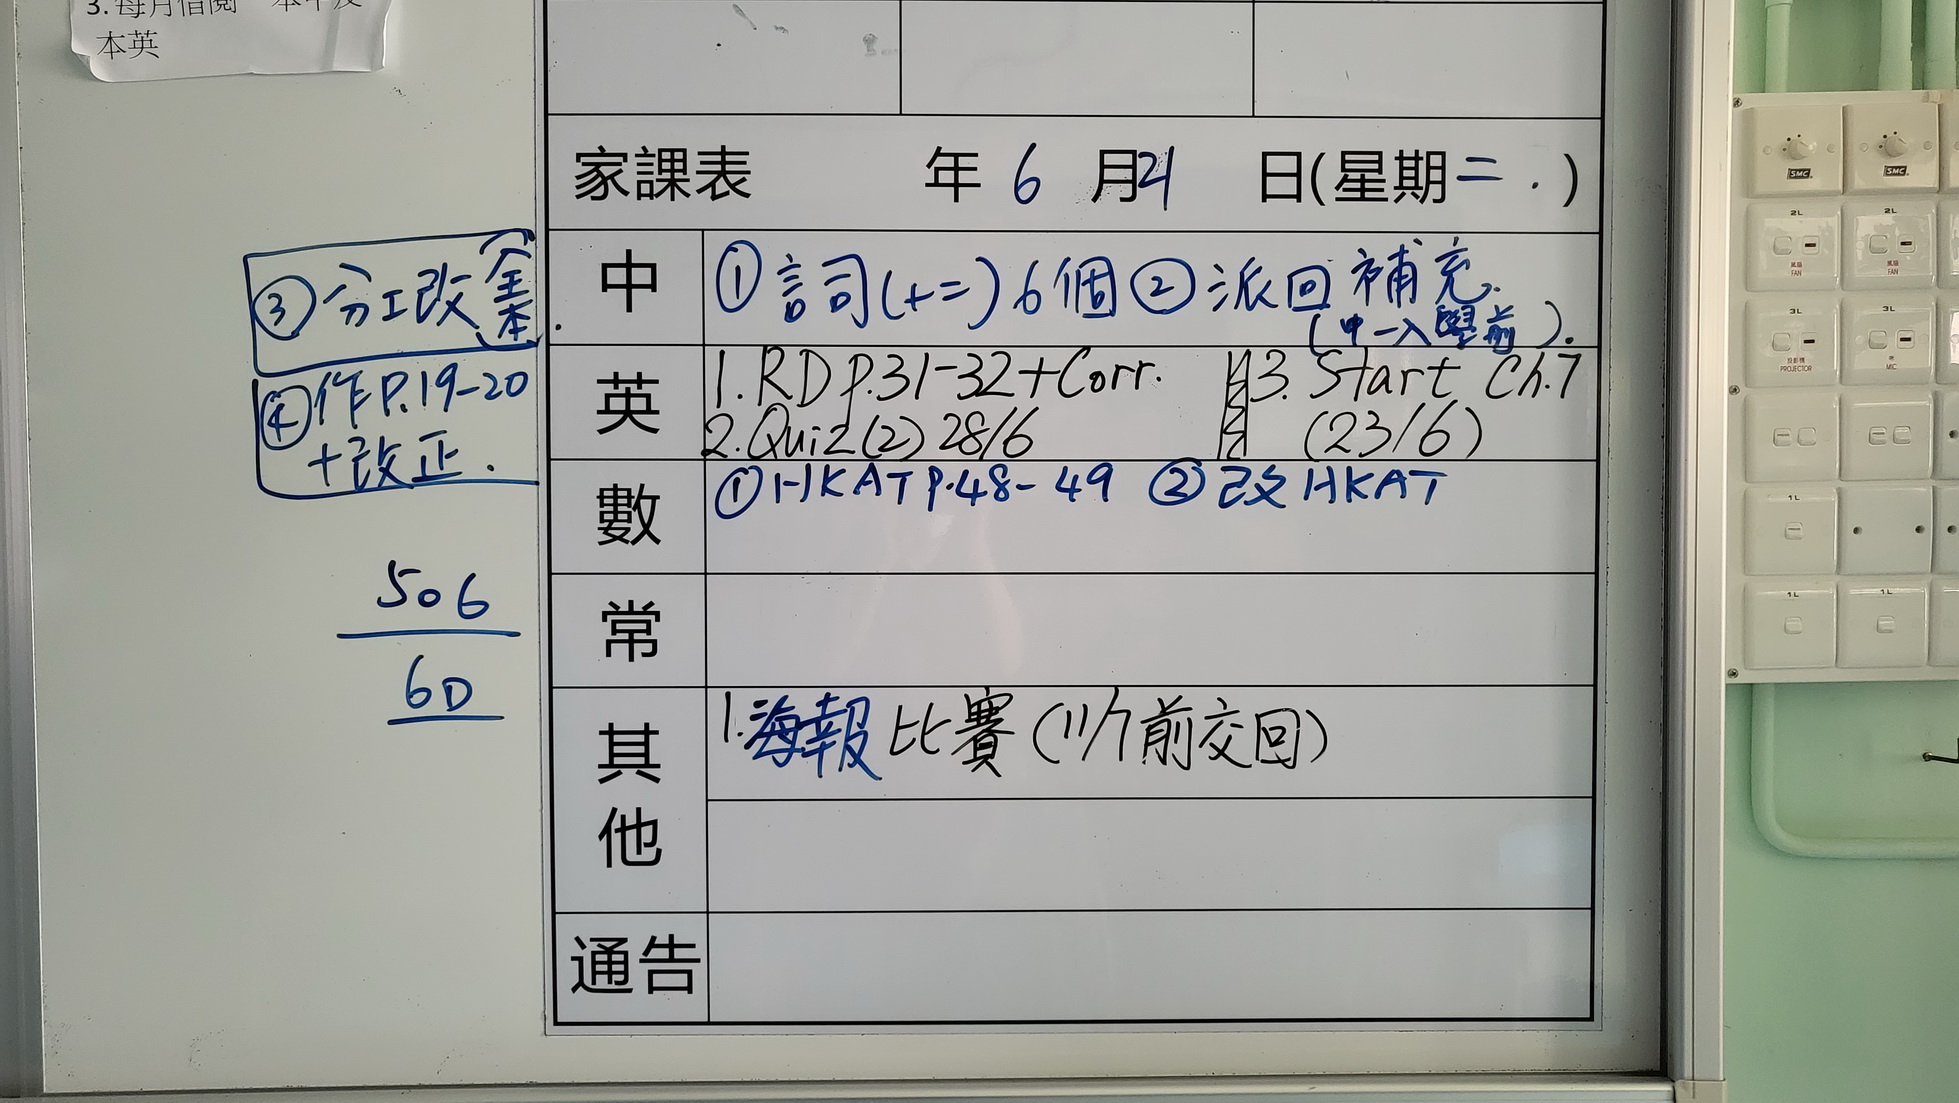 本英
家課表 年 6 月 21 日(星期二.)
中 ① 詞(十二)6個 ② 派回 補充.
(中一入學前).
③ 分工改(全本).
④ 作P.19-20
+改正.
英 1. RD p.31-32+Corr. 3. Start Ch.7
2. Quiz(2) 28/6 (23/6)
數 ① HKAT P.48-49 ② 改 HKAT
506
6D
常
其他 1. 海報比賽(11/7前交回)
通告
SMC
SMC
2L
FAN
2L
FAN
3L
PROJECTOR
3L
MIC
1L
1L
1L